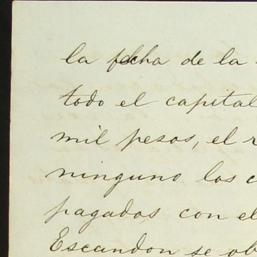 la fecha de la
todo el capital
mil pesos, el
ninguno los
pagados con el
Escandon se ob